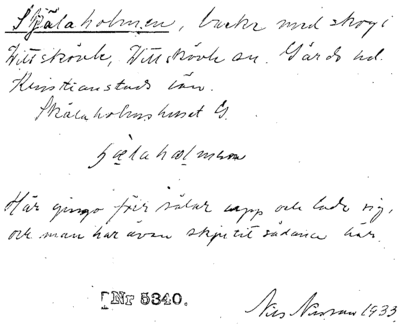 Själaholmen, backe med skog i
Vittskövle, Vittskövle sn. Gärds hd.
Kristianstads län.
Skälaholmshuset G.
själahålmen
Här gingo förr sälar upp och lade sig,
och man har även skjutit sådana här.
[Nr 5340.
Nils Nilsson 1933.